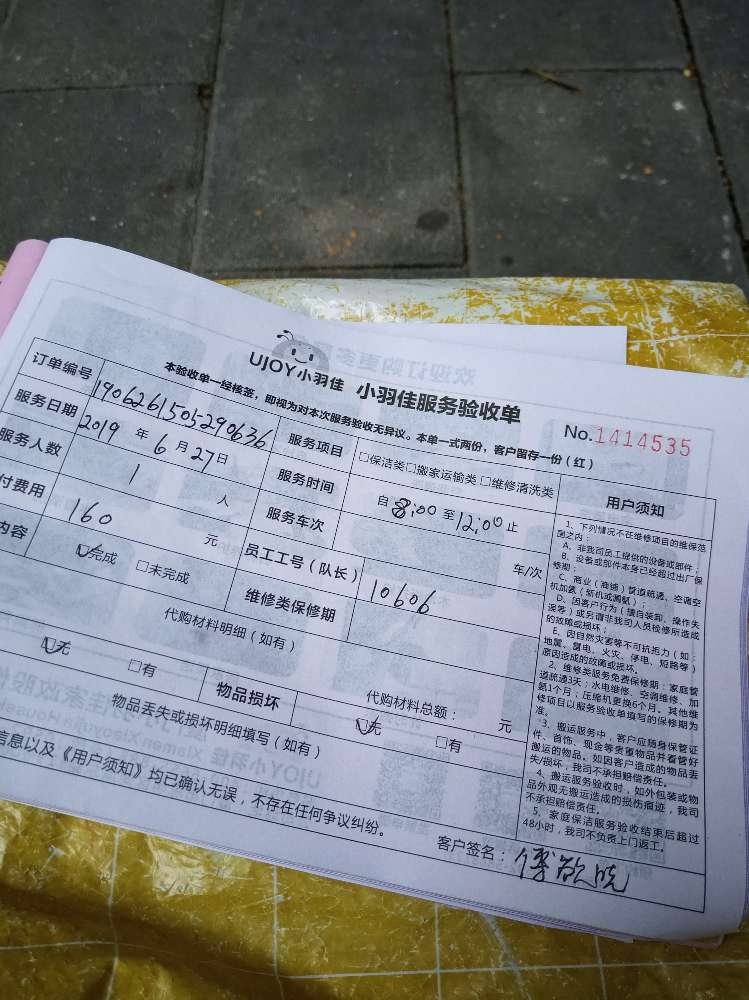 UJOY小羽佳 小羽佳服务验收单
No.1414535
本验收单一经核签，即视为对本次服务验收无异议。本单一式两份，客户留存一份（红）
订单编号 1906261505290636 服务项目 □保洁类□搬家运输类 □维修清洗类
服务日期 2019 年 6 月 27 日 服务时间 自 8:00 至 12:00 止
服务人数 1 人 服务车次 车/次
付费用 160 元 员工工号（队长） 10606
内容 □完成 □未完成 维修类保修期
代购材料明细（如有）
代购材料总额： 元
□无 □有 物品损坏 □无 □有
物品丢失或损坏明细填写（如有）
信息以及《用户须知》均已确认无误，不存在任何争议纠纷。
客户签名：
用户须知
1、下列情况不在维修项目的维保范
围之内：
A、非我司员工提供的设备或部件；
B、设备或部件本身已经超过出厂保
修期；
C、商业（商铺）管道疏通、空调空
机加氟（新机或调氟）；
D、因客户行为（擅自装卸、操作失
误等）或另请非我司人员检修所造成
的故障或损坏；
E、因自然灾害等不可抗拒力（如：
地震、雷电、火灾、停电、短路等）
原因造成的故障或损坏。
2、维修类服务免费保修期：家庭管
道疏通3天；水电维修、空调维修、加
氟1个月；压缩机更换6个月。其他维
修项目以服务验收单填写的保修期为
准。
3、搬运服务中，客户应随身保管证
件、首饰、现金等贵重物品并看管好
搬运的物品。如因客户造成的物品丢
失/损坏，我司不承担赔偿责任。
4、搬运服务验收时，如外包装或物
品外观无搬运造成的损伤痕迹，我司
不承担赔偿责任。
5、家庭保洁服务验收结束后超过
48小时，我司不负责上门返工。